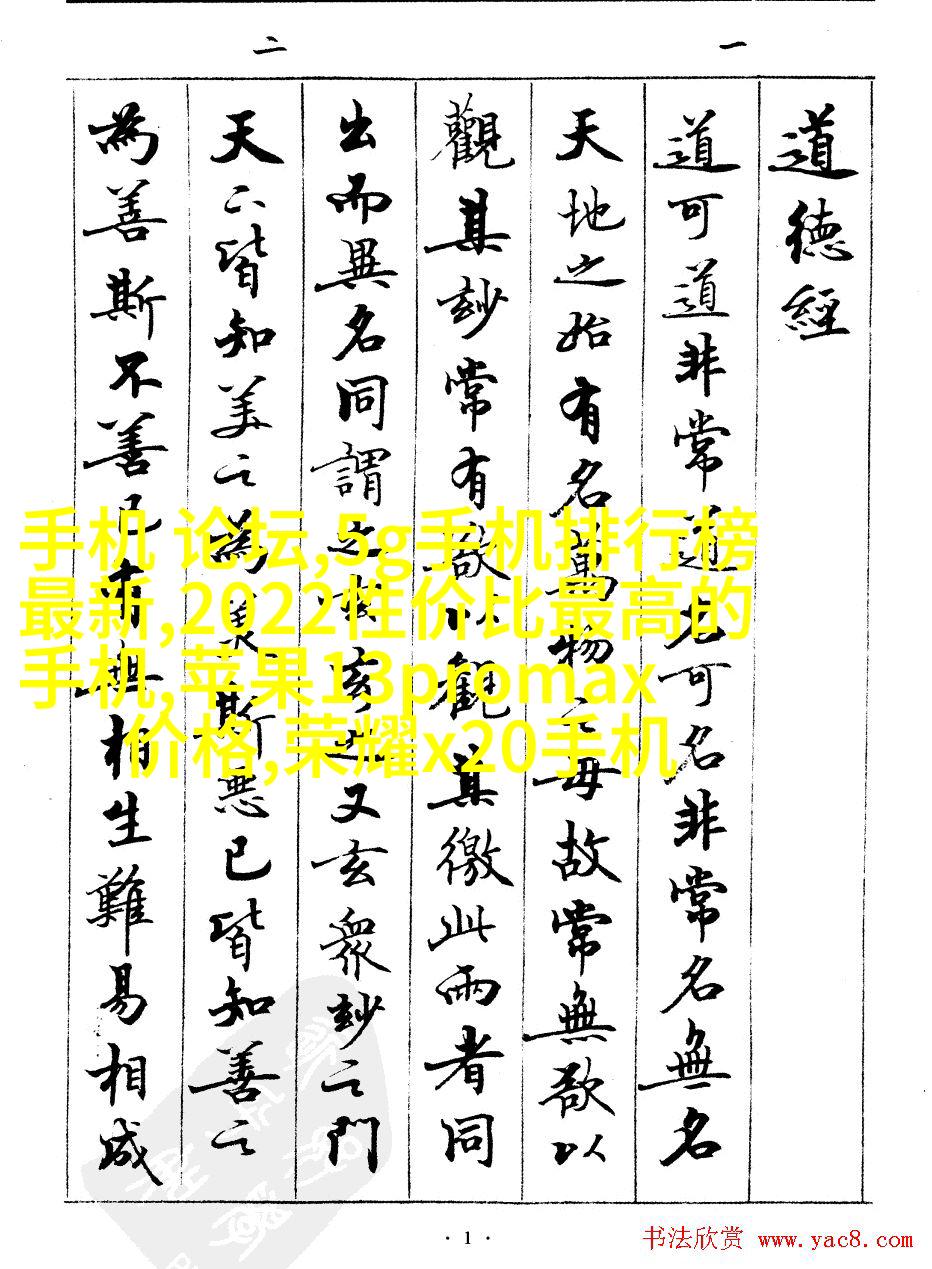 一
二
道德經
道可道非常道名可名非常名無名
天地之始有名萬物之母故常無欲以
觀其玅常有欲以觀其徼此兩者同
出而異名同謂之玄玄之又玄眾玅之門
天下皆知美之為美斯惡已皆知善之
為善斯不善已有無相生難易相成
手机 论坛,5g手机排行榜
最新,2022性价比最高的
手机,苹果13promax
价格,荣耀x20手机
· 1 ·
书法欣赏 www.yac8.com